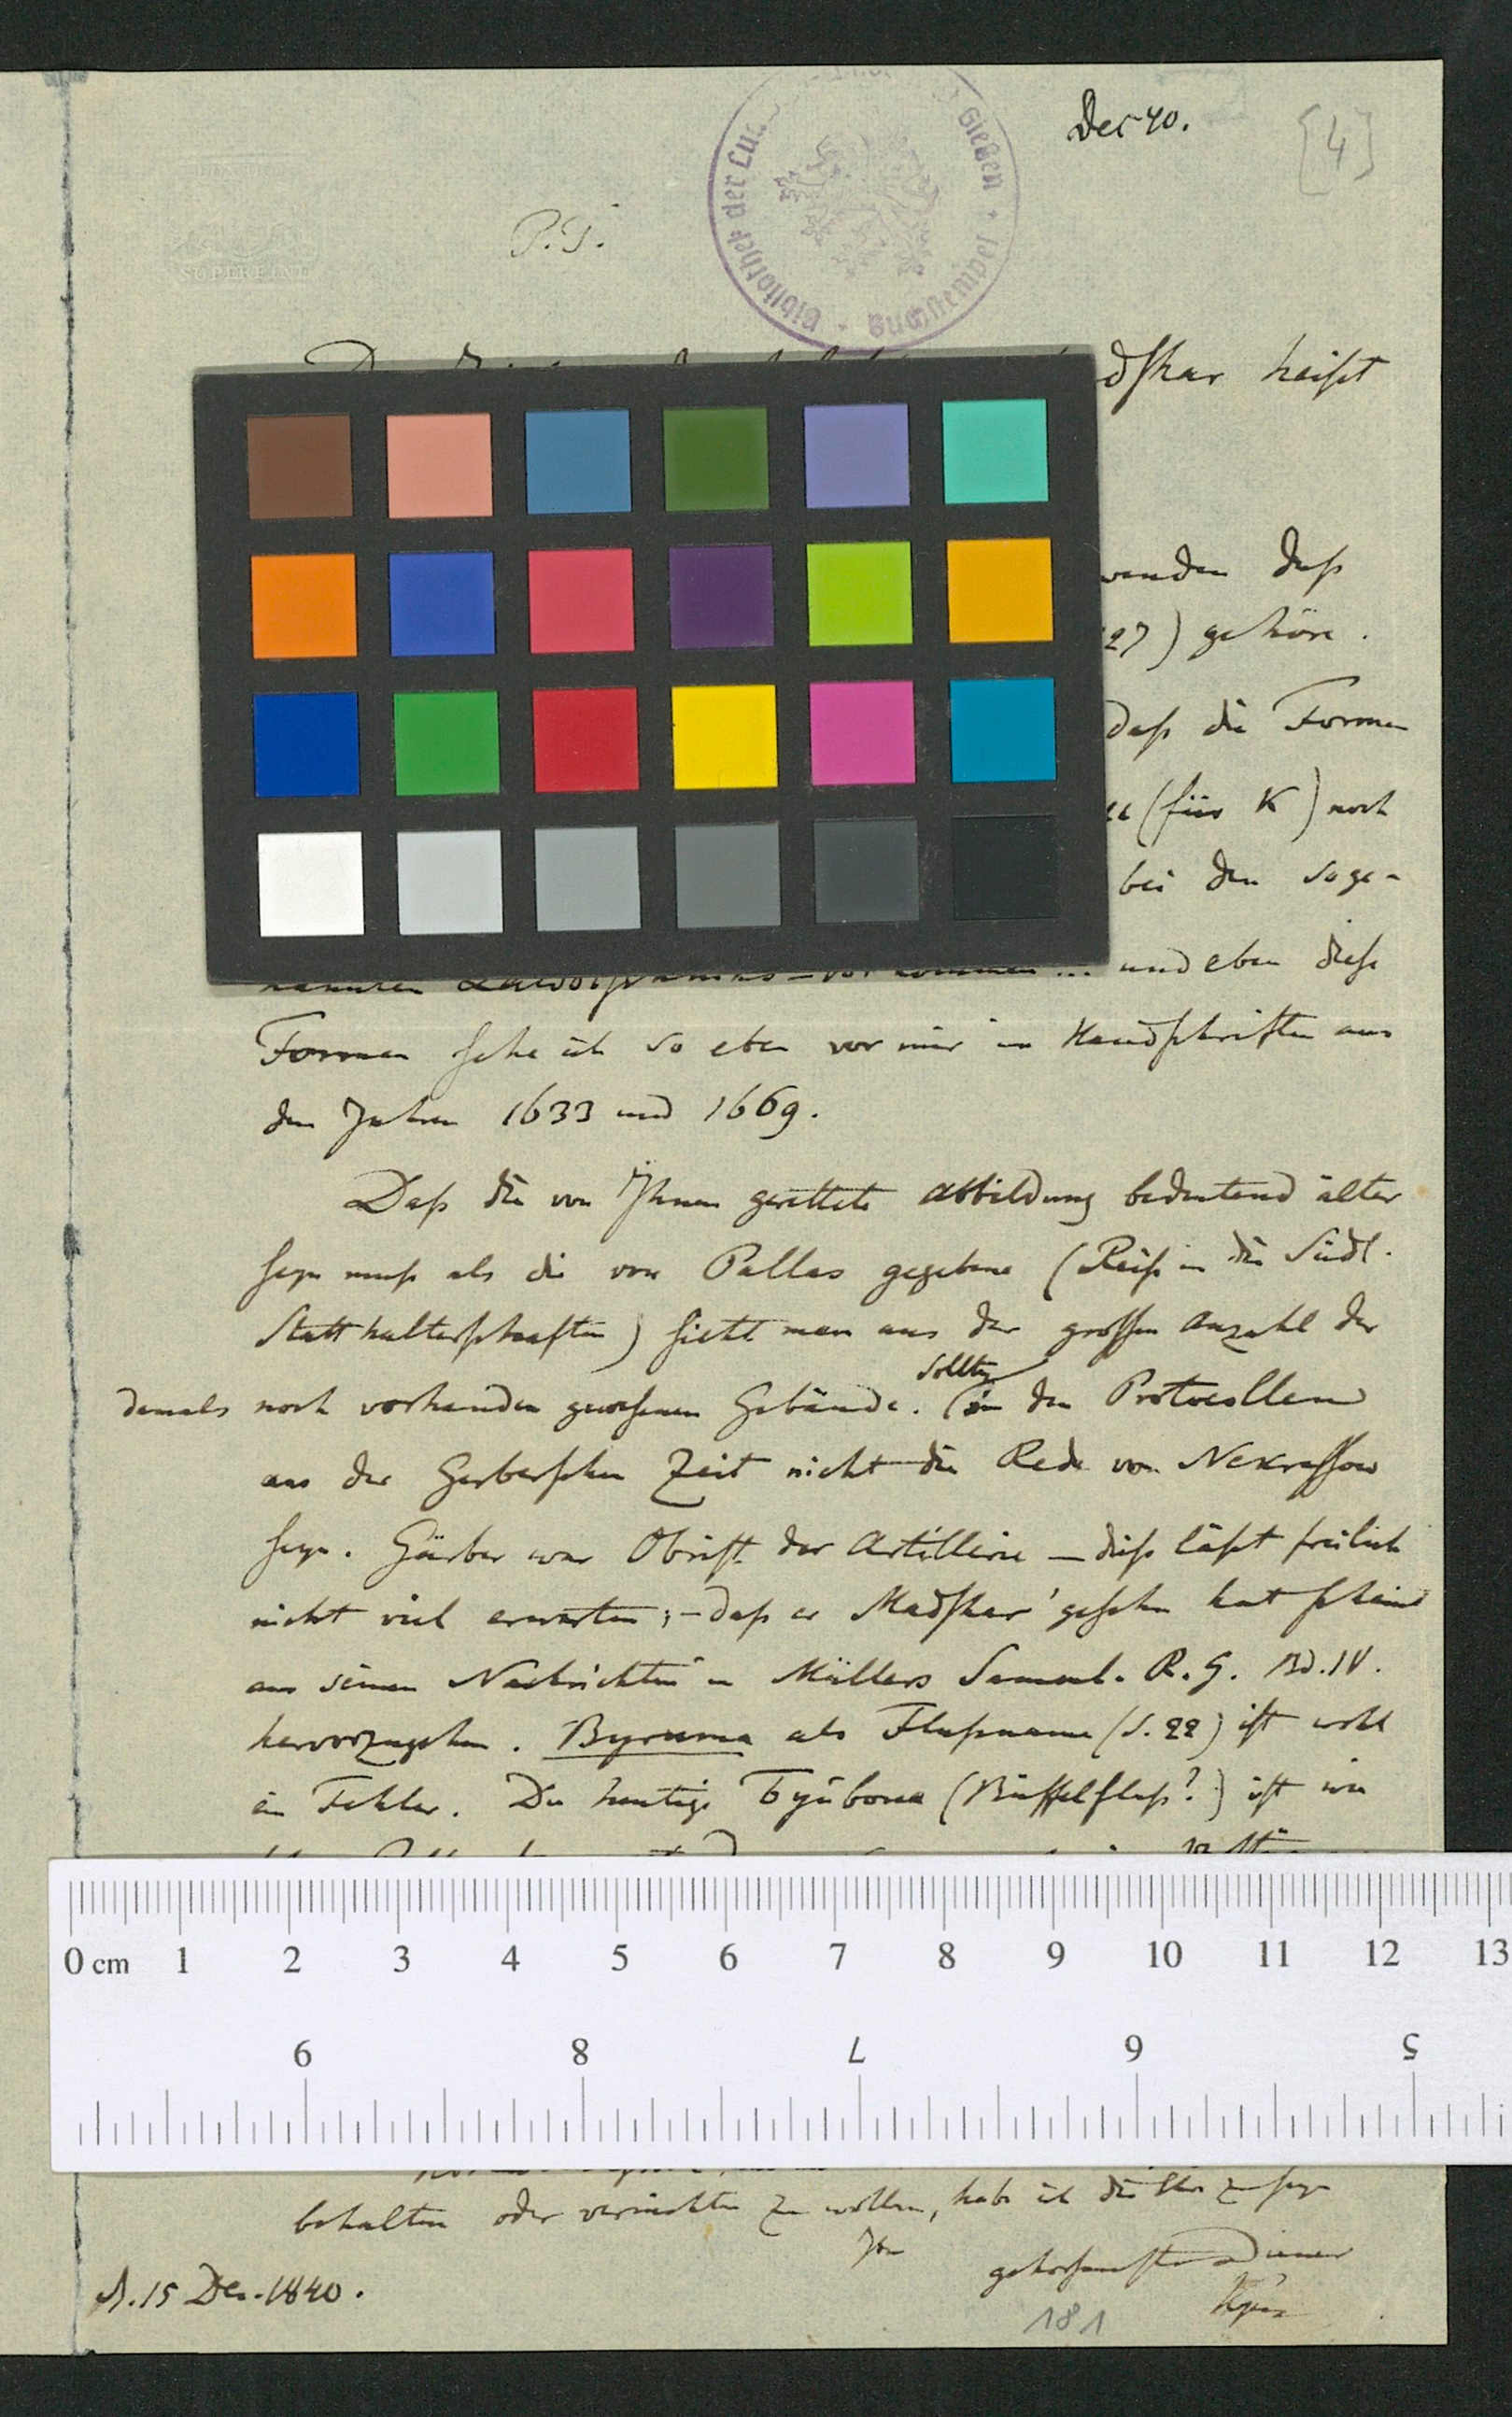 Dec 40.
[4]
P. T.
Bibliothek der Lu
Gießen
Buchstempel
SUPERFINE
dshar heißt
wenden daß
27) gehöre.
daß die Formen
(für K) noch
bei den soge-
nannten vorkommen ... und eben diese
Formen sehe ich so eben vor mir in Handschriften aus
den Jahren 1633 und 1669.
Daß die von Ihnen gerettete Abbildung bedeutend älter
seyn muß als die von Pallas gegebene (Reise in die Südl.
Statthalterschaften) sieht man aus der großen Anzahl der
damals noch vorhanden gewesenen Gebäude. Sollte in den Protocollen
aus der Gerberschen Zeit nicht die Rede von Nekrassow
seyn. Gärber war Obrist der Artillerie — dieß läßt freilich
nicht viel erwarten; — daß er Madshar gesehn hat scheint
aus seinen Nachrichten in Müllers Samml. R. G. Bd. IV.
hervorzugehen. Byruma als Flußname (S. 22) ist wohl
ein Fehler. Der heutige (Büffelfluß?) ist wie
0 cm 1 2 3 4 5 6 7 8 9 10 11 12 13
9 8 7 6 5
behalten oder vernichten zu wollen, habe ich die Ehre zu seyn
Ihr
gehorsamster Diener
d. 15 Dec. 1840.
181